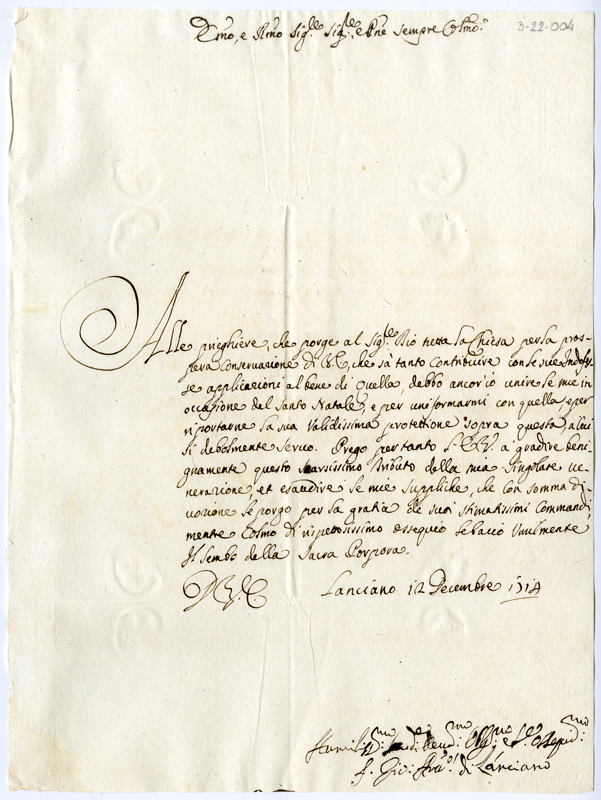 3-22-004
Emo, e Rmo Sig.re Sig.re, e Pne sempre Colmo.
Alle preghiere, che porge al Sig.re Dio tutta la Chiesa per la pros-
pera conservazione di V.E., che sà tanto contribuire con le sue Indefes-
se applicazioni al bene di quella, debbo ancor io unire le mie in
occasione del Santo Natale, e per uniformarmi con quella, e per
riportarne la sua validissima protettione sopra questa a cui
sì debolmente servo. Prego pertanto l'E.V. a gradire beni-
gnamente questo scarsissimo tributo della mia singolare ve-
nerazione, et esaudire le mie suppliche, che con somma di-
vozione le porgo per la gratia de suoi stimatissimi Commandi
mente colmo di rispettosissimo ossequio le bacio Umilmente
Il lembo della Sacra Porpora.
D.V.E. Lanciano 12 Decembre 1714
Humil.mo Dev.mo Obl.mo Se.re Osseq.mo
f. Gio. Arciv. di Lanciano